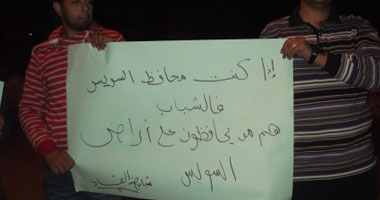 إذا كنت محافظ السويس
فالشباب
هم من يحافظون على أراضى
السويس